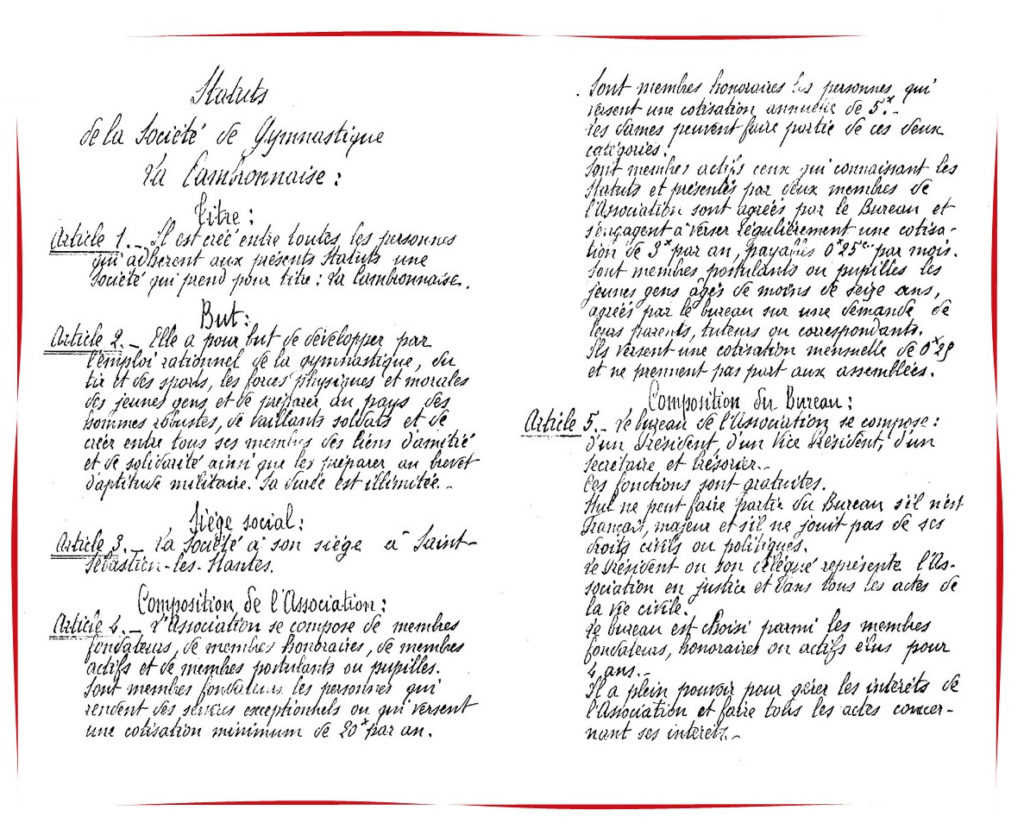 Statuts
de la Société de Gymnastique
La Cambronnaise :
Titre :
Article 1. _ Il est créé entre toutes les personnes
qui adhèrent aux présents Statuts une
Société qui prend pour titre : La Cambronnaise.
But :
Article 2. _ Elle a pour but de développer par
l'emploi rationnel de la gymnastique, du
tir et des sports, les forces physiques et morales
des jeunes gens et de préparer au pays des
hommes robustes, de vaillants soldats et de
créer entre tous ses membres des liens d'amitié
et de solidarité ainsi que les préparer au brevet
d'aptitude militaire. Sa durée est illimitée. _
Siège social :
Article 3. _ La Société a son siège à Saint-
Sébastien-les-Nantes.
Composition de l'Association :
Article 4. _ L'Association se compose de membres
fondateurs, de membres honoraires, de membres
actifs et de membres postulants ou pupilles.
Sont membres fondateurs les personnes qui
rendent des services exceptionnels ou qui versent
une cotisation minimum de 20ᶠ par an.
Sont membres honoraires les personnes qui
versent une cotisation annuelle de 5ᶠ. _
Les dames peuvent faire partie de ces deux
catégories.
Sont membres actifs ceux qui connaissant les
Statuts et présentés par deux membres de
l'Association sont agréés par le Bureau et
s'engagent à verser régulièrement une cotisa-
tion de 3ᶠ par an, payables 0ᶠ25 par mois.
Sont membres postulants ou pupilles les
jeunes gens âgés de moins de seize ans,
agréés par le bureau sur une demande de
leurs parents, tuteurs ou correspondants.
Ils versent une cotisation mensuelle de 0ᶠ25
et ne prennent pas part aux assemblées.
Composition du Bureau :
Article 5. _ Le bureau de l'Association se compose :
d'un Président, d'un Vice Président, d'un
Secrétaire et Trésorier. _
Ces fonctions sont gratuites.
Nul ne peut faire partie du Bureau s'il n'est
Français, majeur et s'il ne jouit pas de ses
droits civils ou politiques.
Le Président ou son délégué représente l'As-
sociation en justice et dans tous les actes de
la vie civile.
Le bureau est choisi parmi les membres
fondateurs, honoraires ou actifs élus pour
4 ans. _
Il a plein pouvoir pour gérer les intérêts de
l'Association et faire tous les actes concer-
nant ses intérêts. _